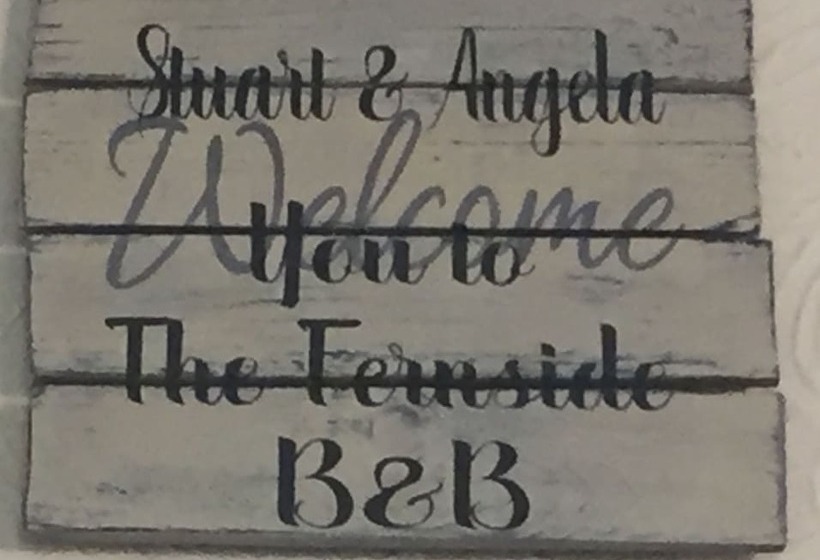 Stuart & Angela
Welcome
You to
The Fernside
B&B